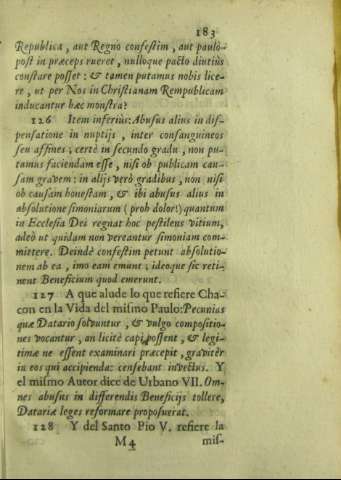 183
Republica, aut Regno confestim, aut paulò
post in præceps rueret, nulloque pacto diutiùs
constare posset: & tamen putamus nobis lice-
re, ut per Nos in Christianam Rempublicam
inducantur hæc monstra?
126 Item inferiùs: Abusus alius in dis-
pensatione in nuptijs, inter consanguineos
seu affines; certè in secundo gradu, non pu-
tamus faciendam esse, nisi ob publicam cau-
sam gravem: in alijs verò gradibus, non nisi
ob causam honestam, & ibi abusus alius in
absolutione simoniarum (proh dolor!) quantum
in Ecclesia Dei regnat hoc pestilens vitium,
adeò ut quidam non vereantur simoniam com-
mittere. Deindè confestim petunt absolutio-
nem ab ea, imo eam emunt; ideoque sic reti-
nent Beneficium quod emerunt.
127 A que alude lo que refiere Cha-
con en la Vida del mismo Paulo: Pecunias
quæ Datario solvuntur, & vulgo compositio-
nes vocantur, an licitè capi possent, & legi-
timæ ne essent examinari præcepit, gravitèr
in eos qui accipienda: censebant invectus. Y
el mismo Autor dice de Urbano VII. Om-
nes abusus in differendis Beneficijs tollere,
Datariæ leges reformare proposuerat.
128 Y del Santo Pio V. refiere la
M4 mis-